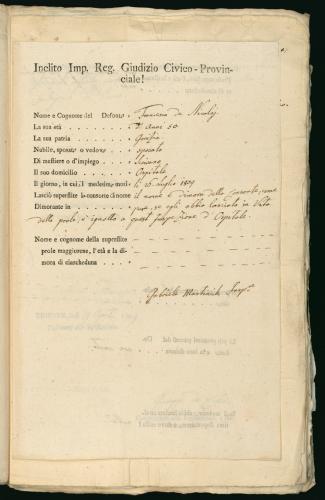 Inclito Imp. Reg. Giudizio Civico-Provin-
ciale!
Nome e Cognome del Defonto Francesco de Nicolj
La sua età d'Anni 50
La sua patria Gorizia
Nubile, sposato o vedovo sposato
Di mestiere o d'impiego
Il suo domicilio Ospitale
Il giorno, in cui il medesimo morì li 25 Luglio 1809
Lasciò superstite la consorte di nome il nome e dimora della consorte, come
Dimorante in pure, se egli abbia lasciato in Vita
della prole, è ignoto a quest' Ospitale.
Nome e cognome della superstite
prole maggiorene, l'età e la di-
mora di ciascheduna
Gabriele